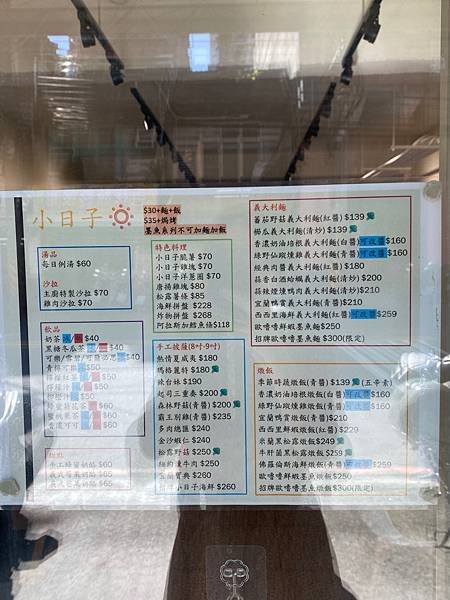 小日子
$30+麵+飯
$35+焗烤
墨魚系列不可加麵加飯
湯品
每日例湯 $60
沙拉
主廚特製沙拉 $70
雞肉沙拉 $70
飲品
奶茶 $40
黑糖冬瓜茶 $40
$40
$50
$60
特色料理
小日子脆薯 $70
小日子雞塊 $70
小日子洋蔥圈 $70
唐揚雞塊 $80
松露薯條 $85
海鮮拼盤 $228
炸物拼盤 $268
阿拉斯加鱈魚條$118
手工披薩(8吋-9吋)
熱情夏威夷 $180
瑪格麗特 $180
辣台妹 $190
起司三重奏 $200
森林野菇(青醬) $200
霸王別雞(青醬) $235
多肉總匯 $240
金沙蝦仁 $240
松露野菇 $250
紐約嫩牛肉 $250
宜蘭寶典 $260
小日子海鮮 $260
義大利麵
蕃茄野菇義大利麵(紅醬) $139
櫛瓜義大利麵(清炒) $139
香濃奶油培根義大利麵(白醬)可改醬$160
綠野仙蹤燻雞義大利麵(青醬)可改醬$160
經典肉醬義大利麵(紅醬) $180
蒜香白酒蛤蠣義大利麵(清炒) $200
蒜辣煙燻鴨肉義大利麵(清炒)$210
宜蘭鴨賞義大利麵(青醬)$210
西西里海鮮義大利麵(紅醬)可改醬$259
歐嚕嚕鮮蝦墨魚麵$250
招牌歐嚕嚕墨魚麵 $300(限定)
燉飯
季節時蔬燉飯(青醬) $139(五辛素)
香濃奶油培根燉飯(白醬)可改醬$160
綠野仙蹤燻雞燉飯(青醬)可改醬$160
宜蘭鴨賞燉飯(青醬) $210
西西里鮮蝦燉飯(紅醬) $229
米蘭黑松露燉飯$249
牛肝菌黑松露燉飯 $259
佛羅倫斯海鮮燉飯(青醬)可改醬$259
歐嚕嚕鮮蝦墨魚燉飯 $250
招牌歐嚕嚕墨魚燉飯$300(限定)
手工蜂蜜奶酪 $60
$65
$65